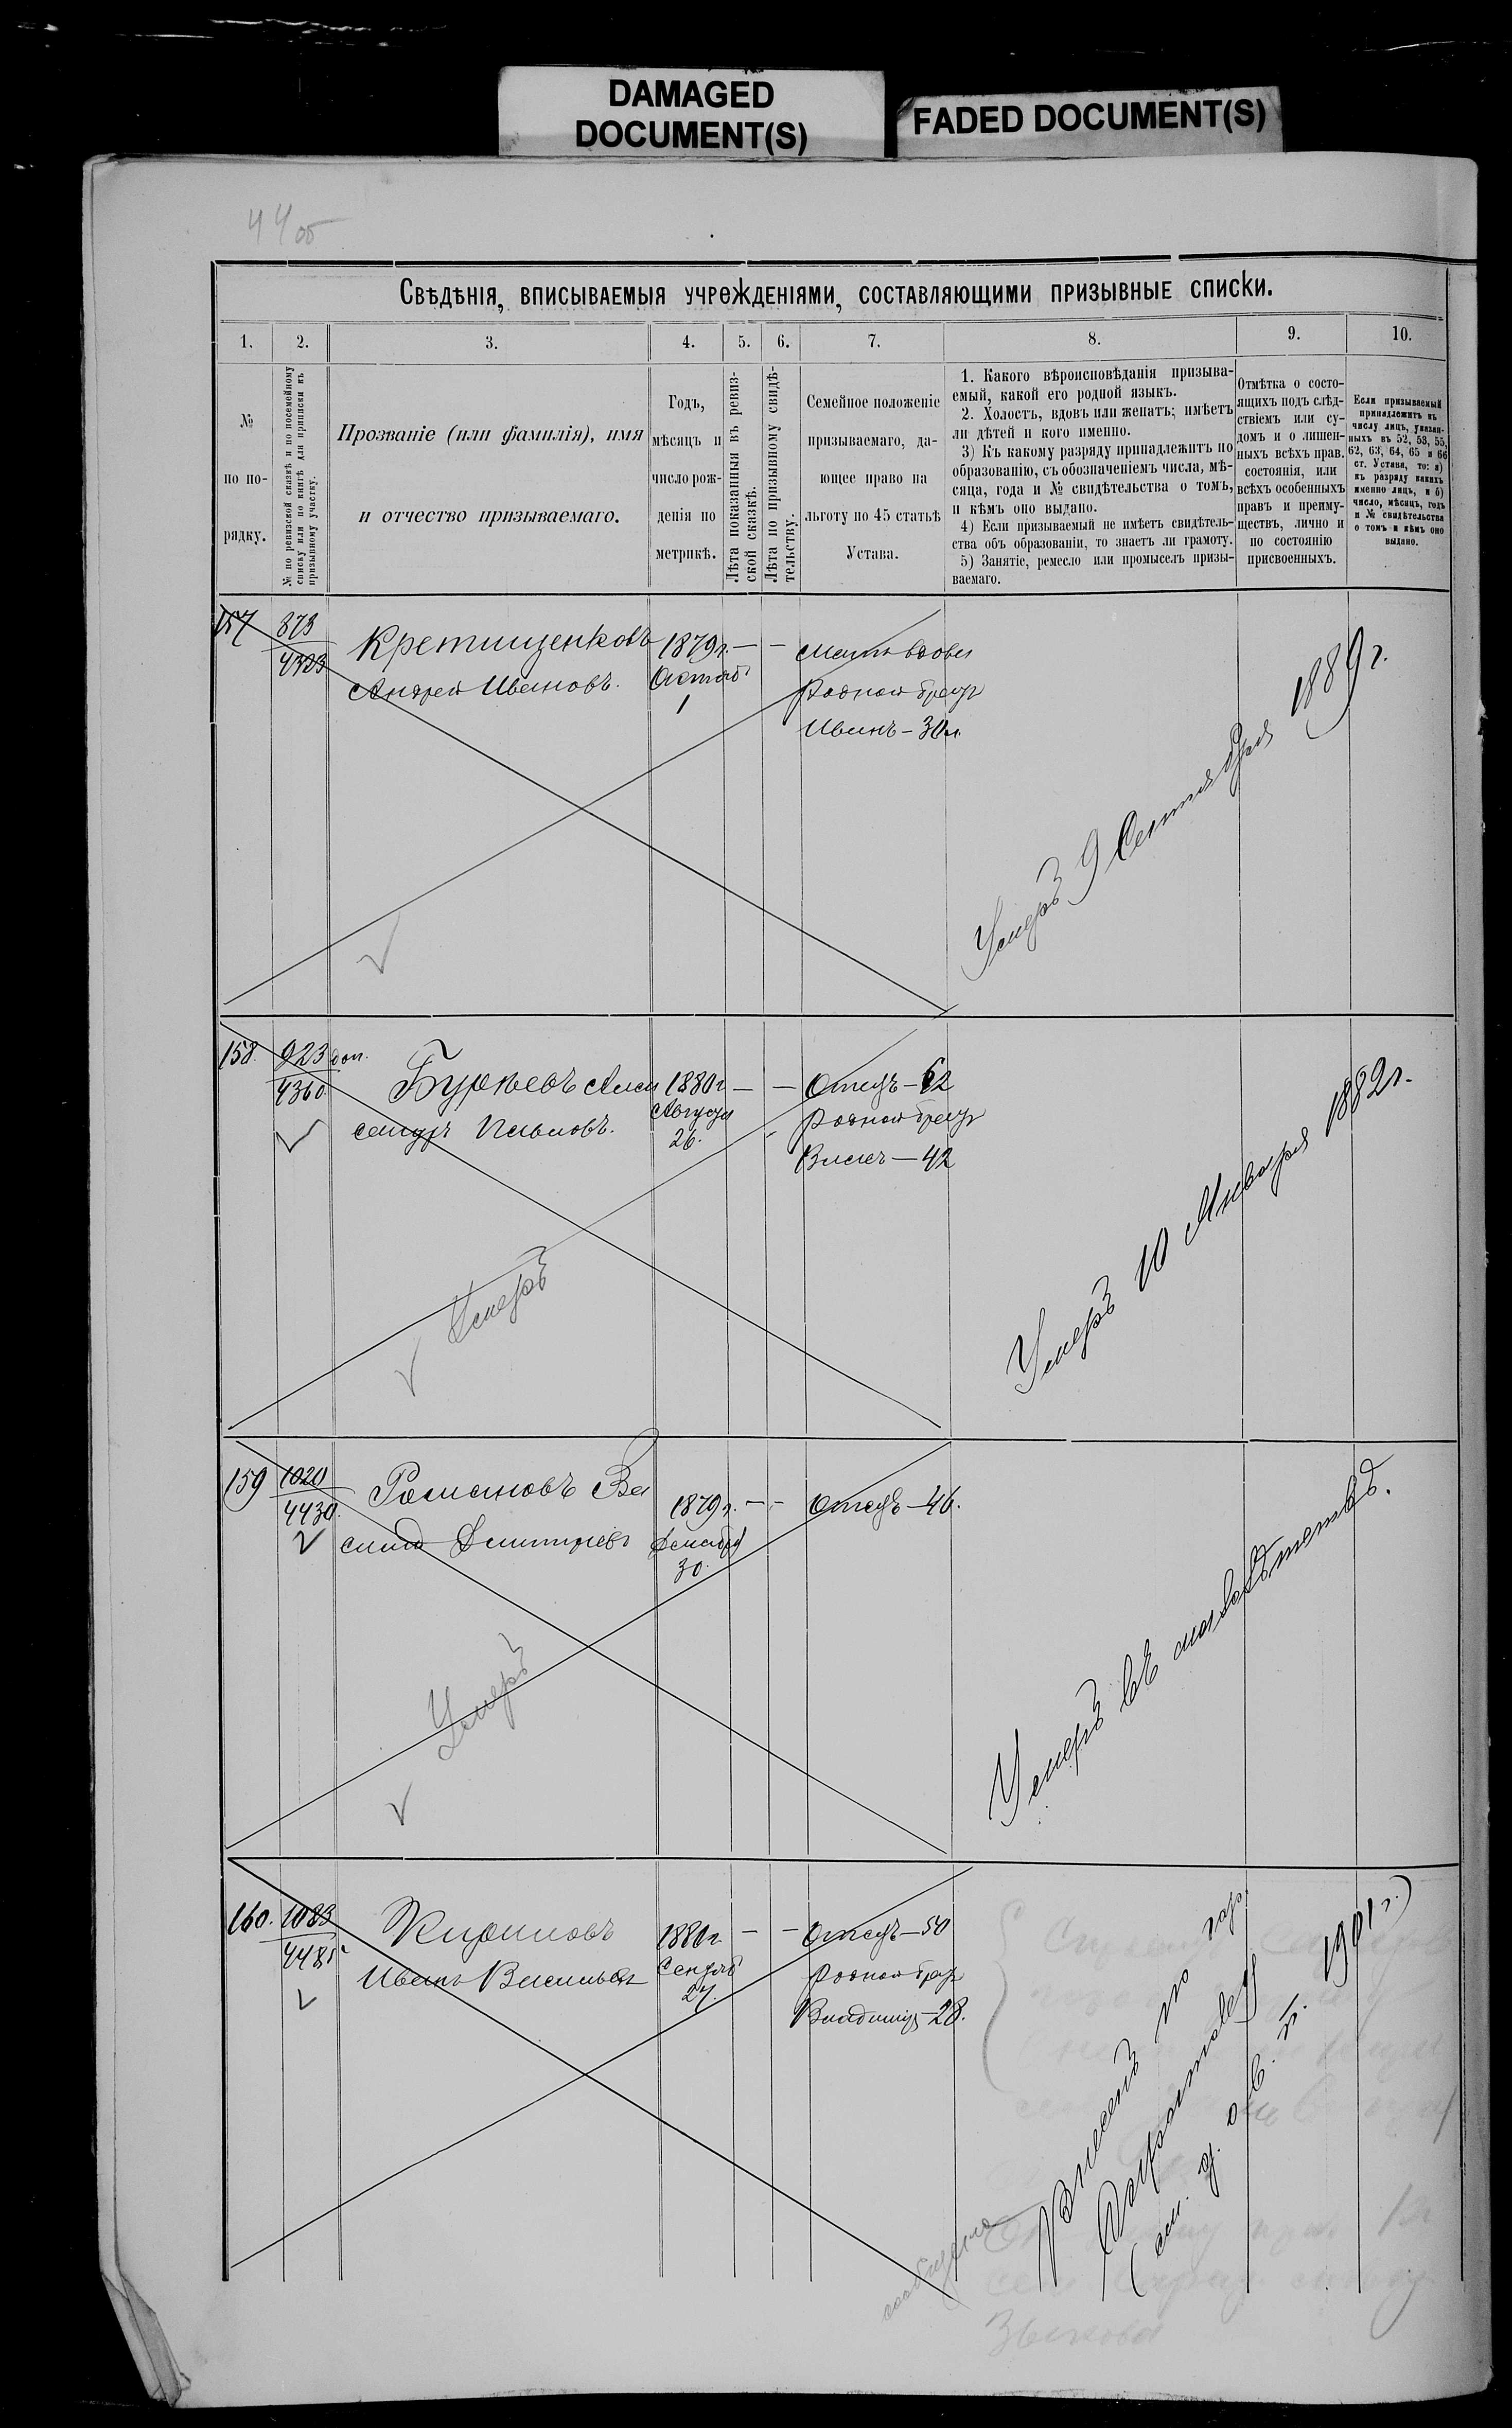 DAMAGED
DOCUMENT(S)
FADED DOCUMENT(S)
44об
Свѣдѣнія, вписываемыя учрежденіями, составляющими призывные списки.
1. 2. 3. 4. 5. 6. 7. 8. 9. 10.
№
по по-
рядку.
№ по ревизской сказкѣ и по посемейному
списку или по книгѣ для приписки къ
призывному участку.
Прозваніе (или фамилія), имя
и отчество призываемаго.
Годъ,
мѣсяцъ и
число рож-
денія по
метрикѣ.
Лѣта показанныя въ ревиз-
ской сказкѣ.
Лѣта по призывному свидѣ-
тельству.
Семейное положеніе
призываемаго, да-
ющее право на
льготу по 45 статьѣ
Устава.
1. Какого вѣроисповѣданія призыва-
емый, какой его родной языкъ.
2. Холостъ, вдовъ или женатъ; имѣетъ
ли дѣтей и кого именно.
3) Къ какому разряду принадлежитъ по
образованію, съ обозначеніемъ числа, мѣ-
сяца, года и № свидѣтельства о томъ,
и кѣмъ оно выдано.
4) Если призываемый не имѣетъ свидѣтель-
ства объ образованіи, то знаетъ ли грамоту.
5) Занятіе, ремесло или промыселъ призы-
ваемаго.
Отмѣтка о состо-
ящихъ подъ слѣд-
ствіемъ или су-
домъ и о лишен-
ныхъ всѣхъ прав.
состоянія, или
всѣхъ особенныхъ
правъ и преиму-
ществъ, лично и
по состоянію
присвоенныхъ.
Если призываемый
принадлежитъ къ
числу лицъ, указан-
ныхъ въ 52, 53, 55,
62, 63, 64, 65 и 66
ст. Устава, то: а)
къ разряду какихъ
именно лицъ, и б)
число, мѣсяцъ, годъ
и № свидѣтельства
о томъ и кѣмъ оно
выдано.
157 873 Кретищенковъ 1879г. — — мать вдова
4323 Андрей Ивановъ. Октяб. родной братъ
1 Иванъ — 30л.
Умеръ 9 Сентября 1889г.
158. 923 доп. Бурневъ Алек 1880г — — отецъ — 62
4360 сандръ Павловъ. Августа родной братъ
26. Васил — 42
Умеръ
Умеръ 10 Января 1882г.
159 1020 Романовъ Ва 1879г. — — отецъ — 46.
4430. силій Дмитріевъ Декабря
30.
Умеръ
Умеръ въ малолѣтствѣ.
160. 1083 Кириловъ 1880г — — отецъ — 50
4485 Иванъ Васильев Сентяб родной братъ
27. Владимір — 28.
Внесенъ по гор.
(см. д. о в. п. 1901г.)
сообщено